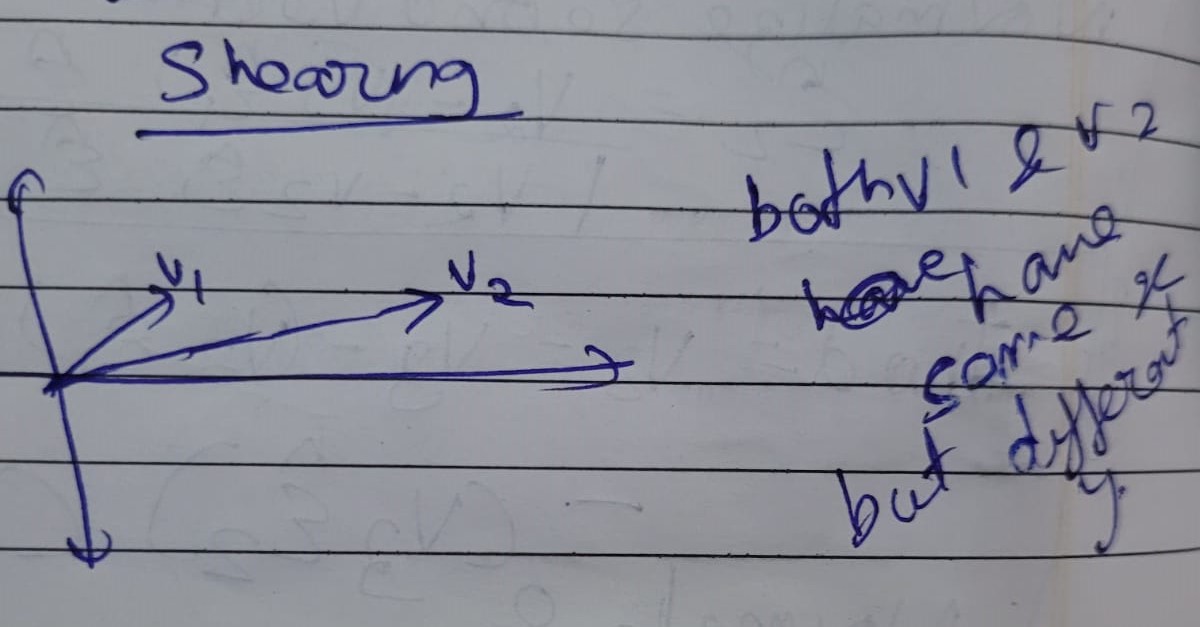 Shearing
v1
v2
both v1 & v2
have
same x
but different
y.